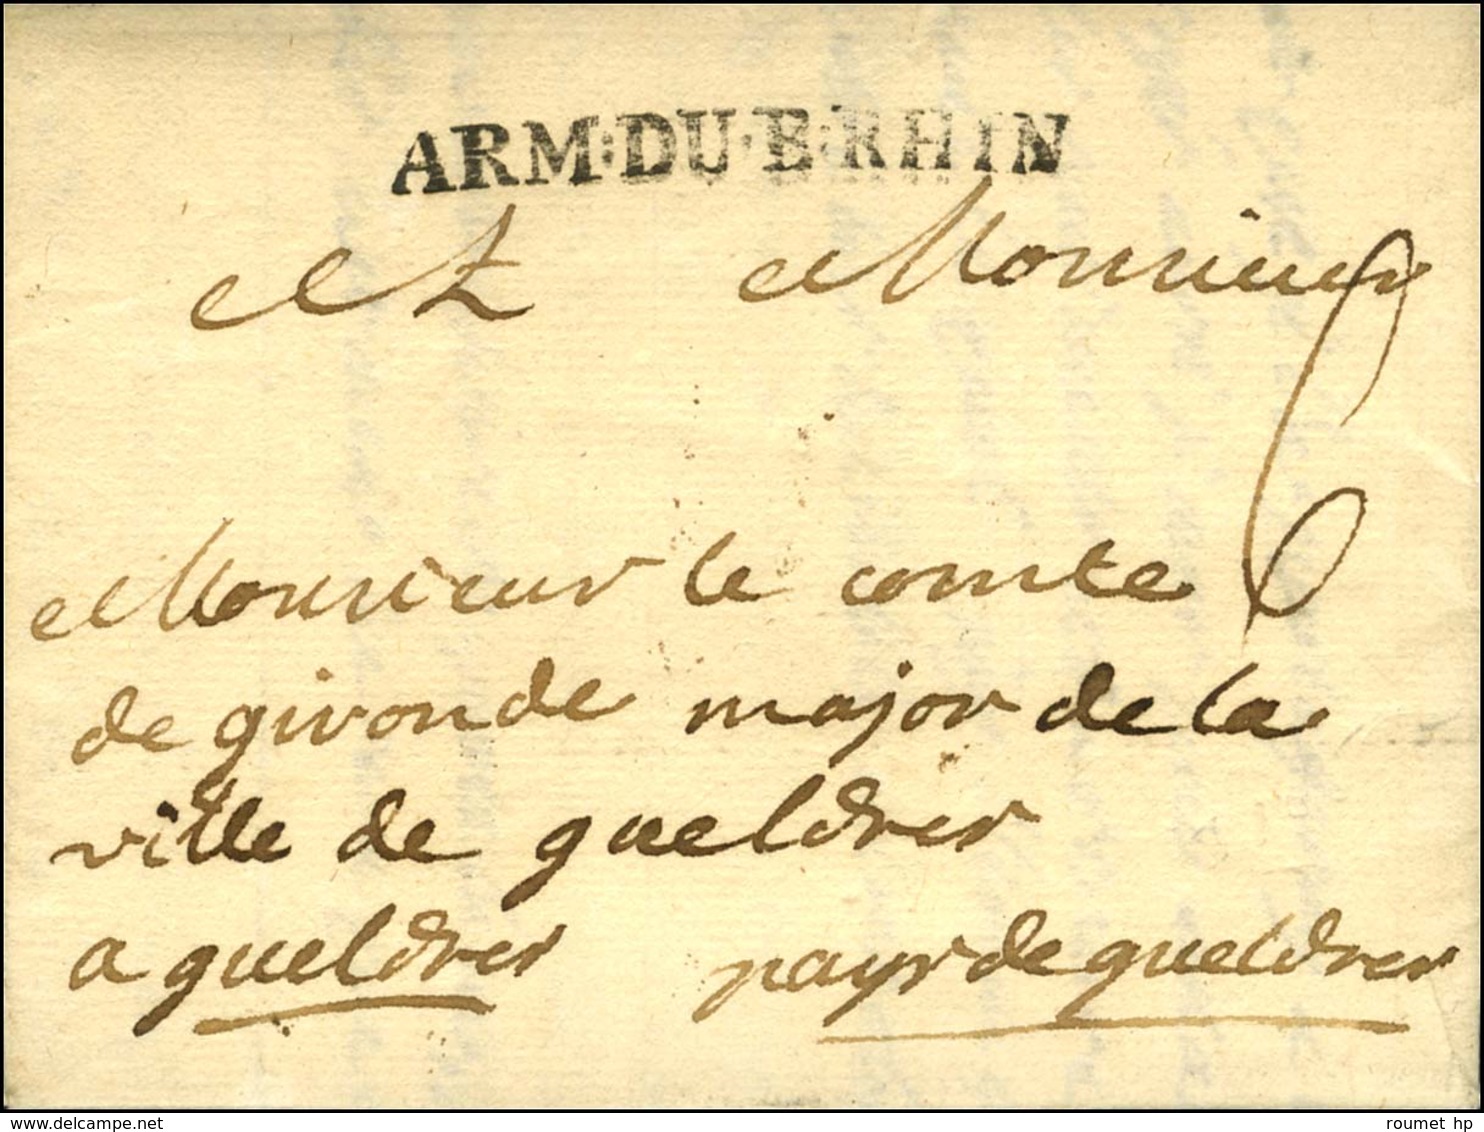 ARM:DU·B:RHIN
A Monsieur
Monsieur le comte
de gironde major de la
ville de gueldres
a gueldres pays de gueldres
roumet hp